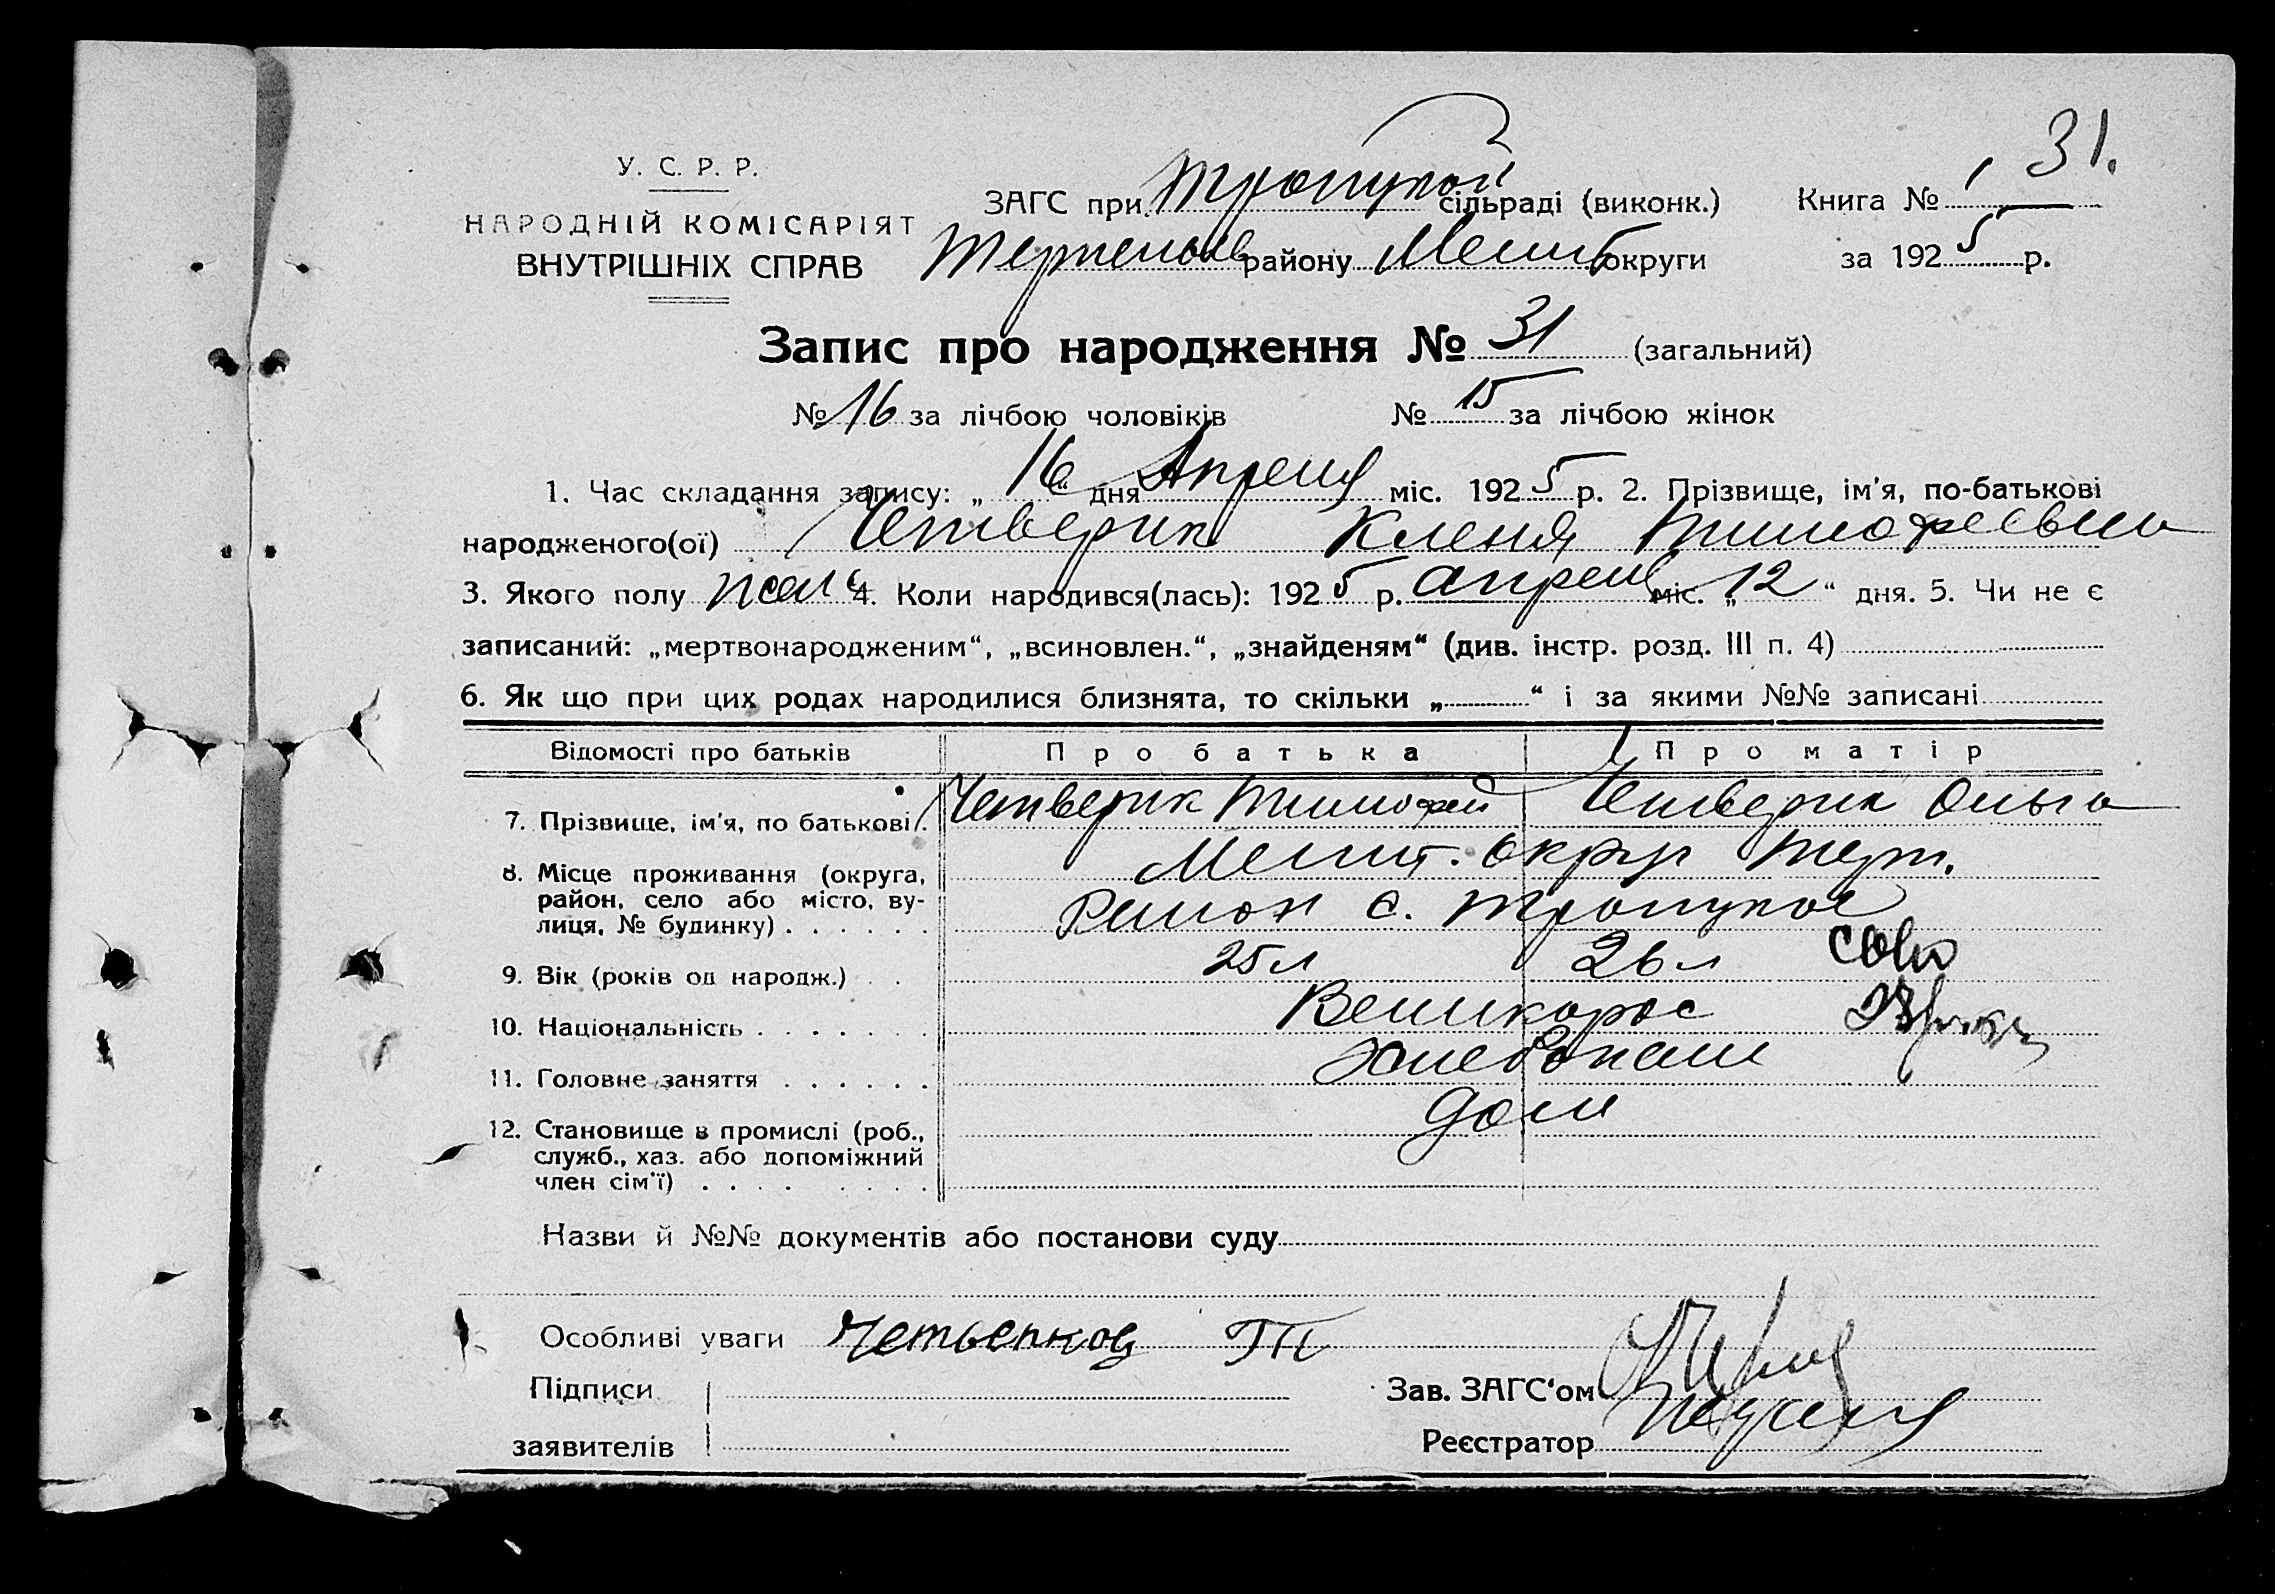 31.
У. С. Р. Р.
ЗАГС при Троицкой сільраді (виконк.) Книга № 1
НАРОДНІЙ КОМІСАРІЯТ
ВНУТРІШНІХ СПРАВ
району Мелит округи за 1925 р.
Запис про народження № 31 (загальний)
№ 16 за лічбою чоловіків № 15 за лічбою жінок
1. Час складання запису: „16“ дня Апреля міс. 1925 р. 2. Прізвище, ім'я, по-батькові
народженого(ої) Четверик Тимофеевна
3. Якого полу жен 4. Коли народився(лась): 1925 р. апреля міс. „12“ дня. 5. Чи не є
записаний: „мертвонародженим“, „всиновлен.“, „знайденям“ (див. інстр. розд. III п. 4)
6. Як що при цих родах народилися близнята, то скільки „ “ і за якими №№ записані
Відомості про батьків Про батька Про матір
7. Прізвище, ім'я, по батькові. Четверик Тимофей Четверик Ольга
8. Місце проживання (округа, район, село або місто, ву-лиця, № будинку) Мелит. округ Терп.
Район с. Троицкое
9. Вік (років од народж.) 25л 26л
10. Національність Великорос
11. Головне заняття Хлебопаш
12. Становище в промислі (роб.,
служб., хаз. або допоміжний
член сім'ї)
Назви й №№ документів або постанови суду
Особливі уваги
Підписи
заявителів
Зав. ЗАГС'ом
Реєстратор